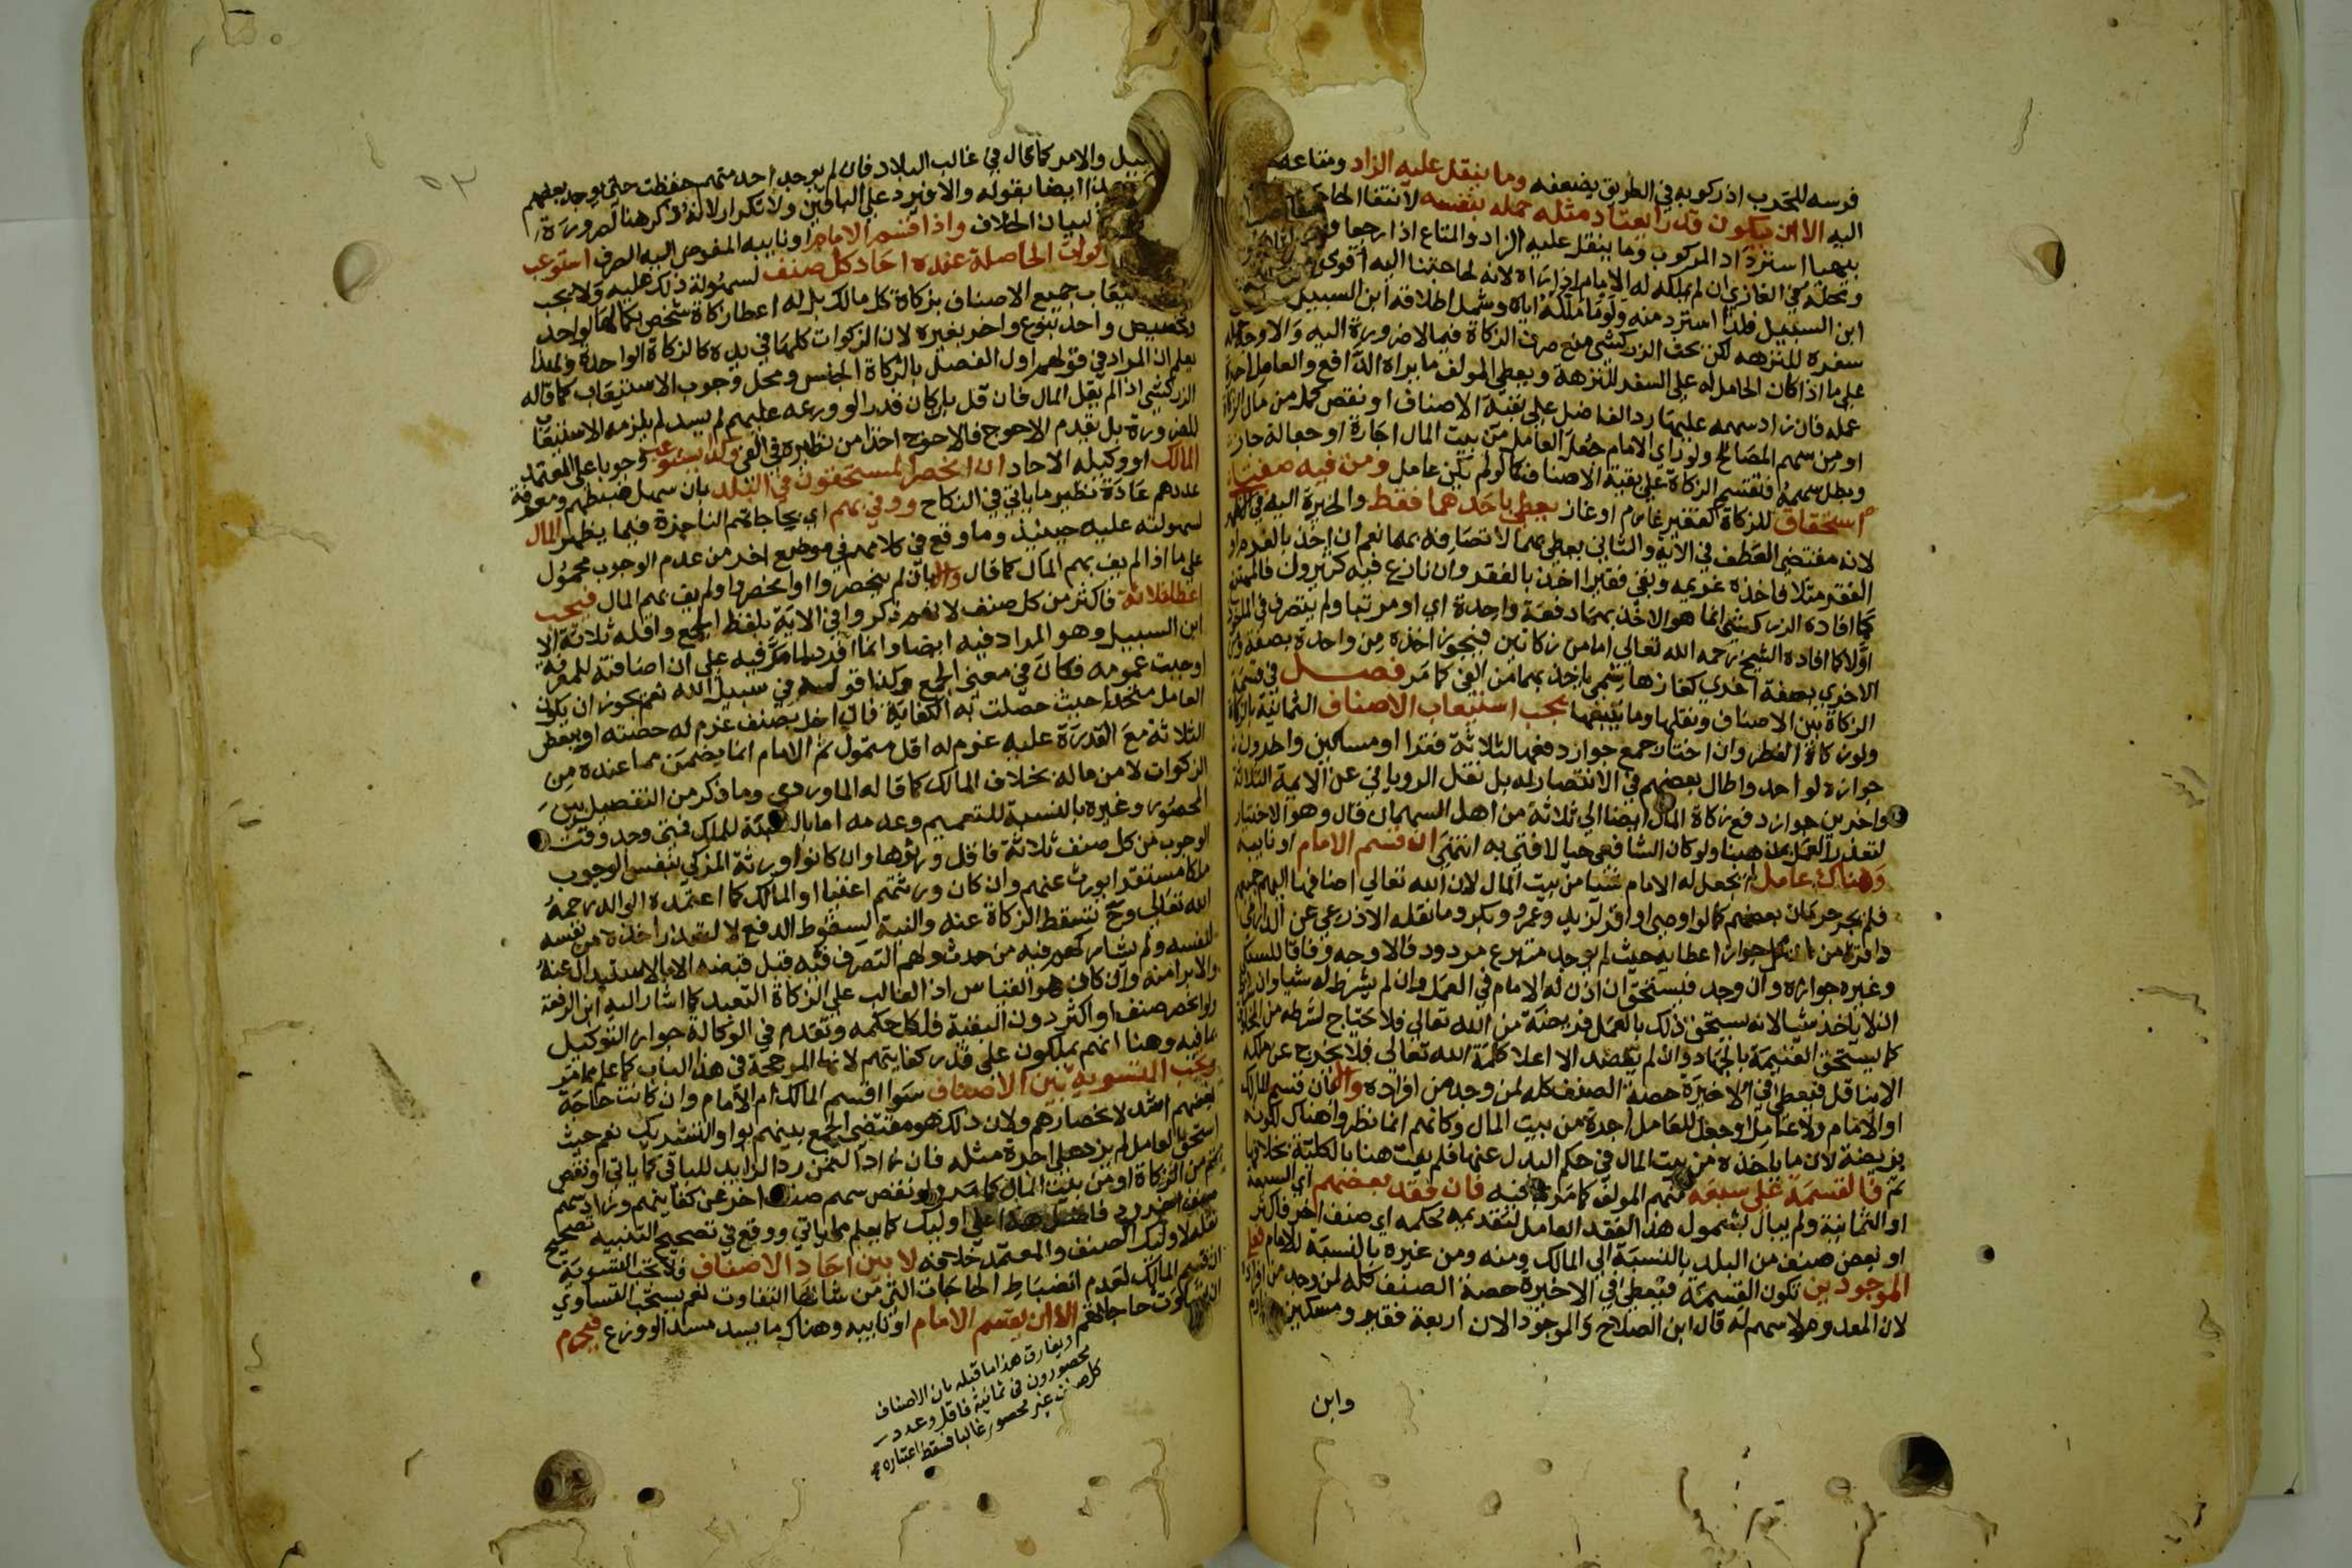 فرسه للحرب اذ ركوبه في الطريق يضعفه وما ينقل عليه الزاد ومتاعه
اليه الا ان يكون قدرا يعتاد مثله حمله بنفسه لانتفا الحاجة
بيهما استرداد المركوب وما ينقل عليه الزاد والمتاع اذا رجعا
ومحله في الغازي ان لم يملكه له الامام اذا راه لانه لحاجتنا اليه اقوى
ابن السبيل فلذا استرد منه ولو ما ملكه اياه وشمل اطلاقه ابن السبيل
سفره للنزهه لكن بحث الزركشي منع صرف الزكاة فيما لا ضرورة اليه والاوجه حمله
على ما اذا كان الحامل له على السفر للنزهة ويعطى المولف ما يراه الدافع والعامل اجرة
عمله فان زاد سهمه عليها رد الفاضل على بقية الاصناف او نقص كمل من مال الزكاة
او من سهم المصالح ولو راى الامام جعل العامل من بيت المال اجارة او جعالة جاز
وبطل سهمه فتقسم الزكاة على بقية الاصناف كما لو لم يكن عامل ومن فيه صفتا
استحقاق للزكاة كفقير غارم او غاز يعطى باحدهما فقط والخيرة اليه في
لانه مقتضى العطف في الاية والثاني يعطى بهما لاتصافه بهما نعم ان اخذ بالغرم او
الفقر مثلا فاخذه غريمه وبقي فقيرا اخذ بالفقر وان نازع فيه كثيرون فالممتنع
كما افاده الزركشي انما هو الاخذ بهما دفعة واحدة اي او مرتبا ولم يتصرف في الماخوذ
اولا كما افاده الشيخ رحمه الله تعالى اما من زكاتين فيجوز اخذه من واحدة بصفة ومن
الاخرى بصفة اخرى كغاز هاشمي ياخذ بهما من الفي كما مر فصل في قسمة
الزكاة بين الاصناف ونقلها وما يتبعهما يجب استيعاب الاصناف الثمانية بالزكاة
ولو زكاة الفطر وان اختار جمع جواز دفعها لثلاثة فقرا او مساكين واخرون
جوازه لواحد واطال بعضهم في الانتصار له بل نقل الروياني عن الايمة الثلاثة
واخرين جواز دفع زكاة المال ايضا الى ثلاثة من اهل السهمان قال وهو الاختيار
لتعذر العمل بمذهبنا ولو كان الشافعي حيا لافتى به انتهى ان قسم الامام او نايبه
وهناك عامل لم يجعل له الامام شيا من بيت المال لان الله تعالى اضافها اليهم جميعهم
فلم يجز حرمان بعضهم كما لو اوصى او اقر لزيد وعمرو وبكر وما نقله الاذرعي عن الدارمي
واقره من جواز اعطايه حيث لم يوجد متبرع مردود فالاوجه وفاقا للسبكي
وغيره جوازه وان وجد فيستحق ان اذن له الامام في العمل وان لم يشرط له شيا
ان لا ياخذ شيا لانه يستحق ذلك بالعمل فريضة من الله تعالى فلا يحتاج لشرطه من المخلوق
كما يستحق الغنيمة بالجهاد وان لم يقصد الا اعلا كلمة الله تعالى فلا يخرج عن ملكه
الا بناقل فيعطى في الاخيرة حصة الصنف كله لمن وجد من افراده والا بان قسم المالك
او الامام ولا عامل او جعل للعامل اجرة من بيت المال وكانهم انما نظروا هناك لكونه
فريضة لان ما ياخذه من بيت المال في حكم البدل عنها فلم يفت هنا بالكلية بخلافها
ثم فالقسمة على سبعة منهم المولف كما مر ما فيه فان فقد بعضهم اي السبعة
او الثمانية ولم يبال بشمول هذا الفقد العامل لتقديمه حكمه اي صنف اخر فاكثر
او بعض صنف من البلد بالنسبة الى المالك ومنه ومن غيره بالنسبة للامام فعلى
الموجودين تكون القسمة فيعطى في الاخيرة حصة الصنف كله لمن وجد من افراده
لان المعدوم لا سهم له قال ابن الصلاح والموجود الان اربعة فقير ومسكين وغارم
وابن
٥٣
سبيل والامر كما قال في غالب البلاد فان لم يوجد احد منهم حفظت حتى يوجد بعضهم
هذا ايضا بقوله والا فيرد على الباقين ولا تكرار لانه ذكر هنا لضرورة
لبيان الخلاف واذا قسم الامام او نايبه المفوض اليه الصرف استوعب
الزكوات الحاصلة عنده احاد كل صنف لسهولة ذلك عليه ولا يجب
استيعاب جميع الاصناف بزكاة كل مالك بل له اعطا زكاة شخص بكمالها لواحد
وتخصيص واحد بنوع واخر بغيره لان الزكوات كلها في يده كالزكاة الواحدة وبهذا
يعلم ان المراد في قولهم اول الفصل بالزكاة الجنس ومحل وجوب الاستيعاب كما قاله
الزركشي اذا لم يقل المال فان قل بان كان قدرا لو وزعه عليهم لم يسد لم يلزمه الاستيعاب
للضرورة بل يقدم الاحوج فالاحوج اخذا من نظيره في الفي وكذا يستوعب وجوبا على المعتمد
المالك او وكيله الاحاد ان انحصر المستحقون في البلد بان سهل ضبطهم ومعرفة
عددهم عادة نظير ما ياتي في النكاح ووفى بهم اي بحاجاتهم الناجزة فيما يظهر المال
لسهولته عليه حينئذ وما وقع في كلامهم في موضع اخر من عدم الوجوب محمول
على ما اذا لم يف بهم المال كما قال والا بان لم ينحصروا او انحصروا ولم يف بهم المال فيجب
اعطا ثلاثة فاكثر من كل صنف لانهم ذكروا في الاية بلفظ الجمع واقله ثلاثة الا
ابن السبيل وهو المراد فيه ايضا وانما افرد لما مر فيه على ان اضافته للمعرفة
اوجبت عمومه فكان في معنى الجمع وكذا قوله في سبيل الله نعم يجوز ان يكون
العامل متحدا حيث حصلت به الكفاية فان اخل بصنف غرم له حصته او ببعض
الثلاثة مع القدرة عليه غرم له اقل متمول ثم الامام انما يضمن مما عنده من
الزكوات لا من ماله بخلاف المالك كما قاله الماوردي وما ذكر من التفصيل بين
المحصور وغيره بالنسبة للتعميم وعدمه اما بالنسبة للملك فمتى وجد وقت
الوجوب من كل صنف ثلاثة فاقل ورثوها وان كانوا ورثة المزكي بنفس الوجوب
ملكا مستقرا يورث عنهم وان كان ورثتهم اغنيا او المالك كما اعتمده الوالد رحمه
الله تعالى وح تسقط الزكاة عنه والنية لسقوط الدفع لا لتعذر اخذه من نفسه
لنفسه ولم يشاركهم فيه من حدث ولهم التصرف فيه قبل قبضه الا بالاستبدال عنه
والابرا منه وان كان هو القياس اذ الغالب على الزكاة التعبد كما اشار اليه ابن الرفعة
ولو انحصر صنف او اكثر دون البقية فلكل حكمه وتقدم في الوكالة جواز التوكيل
ما فيه وهنا انهم يملكون على قدر كفايتهم لانها المرجحة في هذا الباب كما علم مما مر
ويجب التسوية بين الاصناف سوا اقسم المالك ام الامام وان كانت حاجة
بعضهم اشد لانحصارهم ولان ذلك هو مقتضى الجمع بينهم بواو التشريك نعم حيث
استحق العامل لم يزد على اجرة مثله فان زاد الثمن رد الزايد للباقي كما ياتي او نقص
تمم من الزكاة او من بيت المال كما مر ولو نقص سهم صنف اخر عن كفايتهم وزاد سهم
صنف اخر رد فاضل هذا على اوليك كما يعلم مما ياتي ووقع في تصحيح التنبيه تصحيح
نقله لاوليك الصنف والمعتمد خلافه لا بين احاد الاصناف فلا تجب التسوية
ان قسم المالك لعدم انضباط الحاجات التي من شانها التفاوت نعم يستحب التساوي
ان تساوت حاجاتهم الا ان يقسم الامام او نايبه وهناك ما يسد مسدا لو وزع فيحرم
ويفارق هذا ما قبله بان الاصناف
محصورون في ثمانية فاقل وعدد
كل صنف غير محصور غالبا فسقط اعتباره